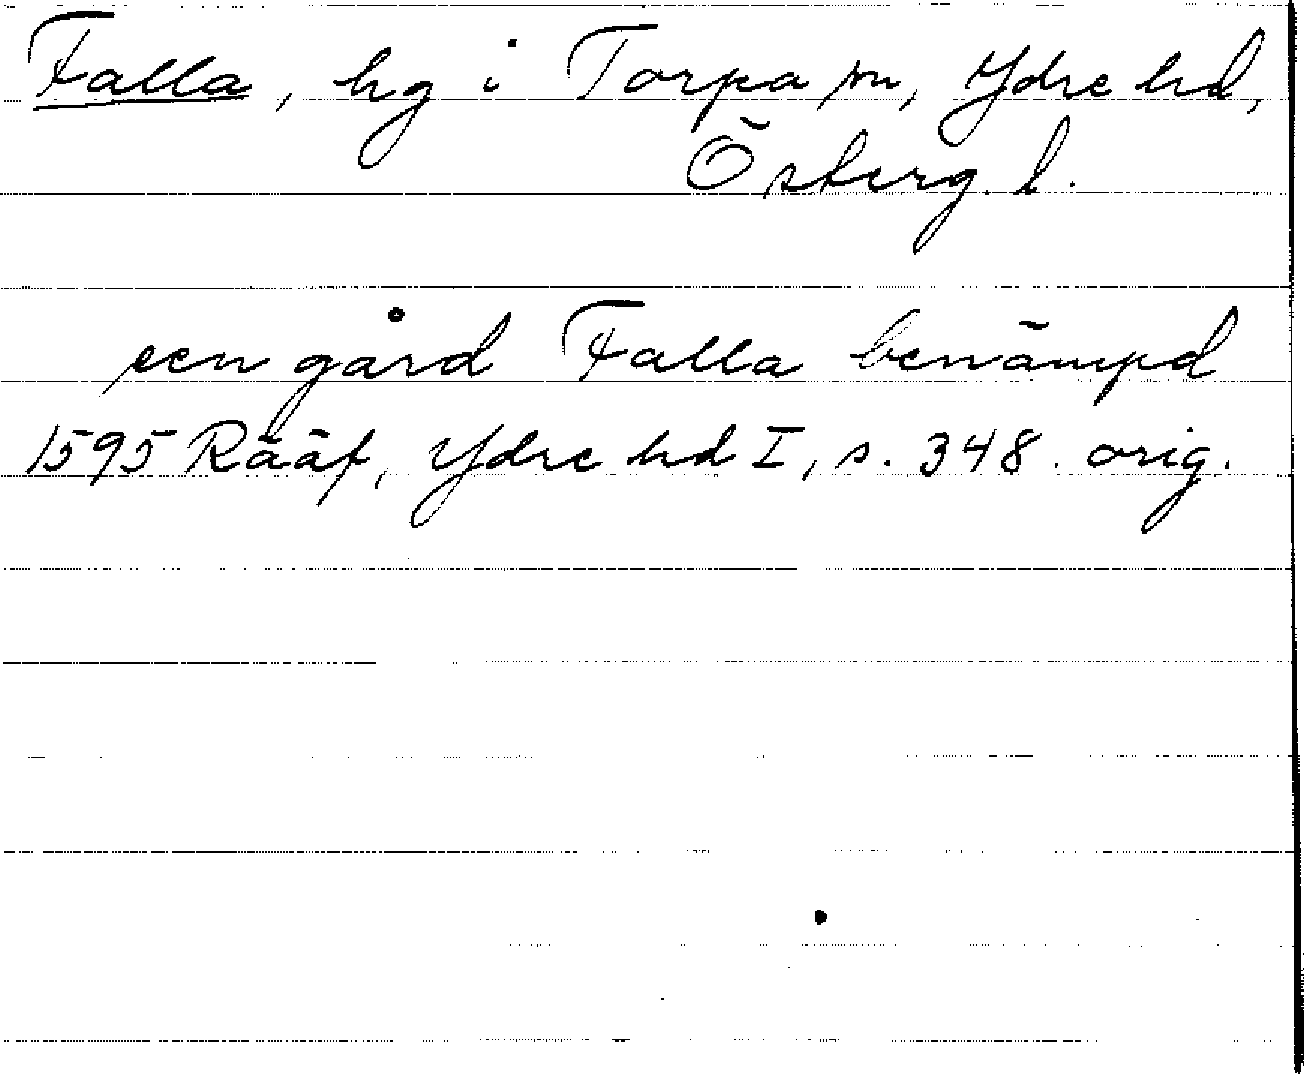 Falla, hg i Torpa sn, Ydre hd,
Österg. l.
een gård Falla benämpd
1595 Rääf, Ydre hd I, s. 348. orig.